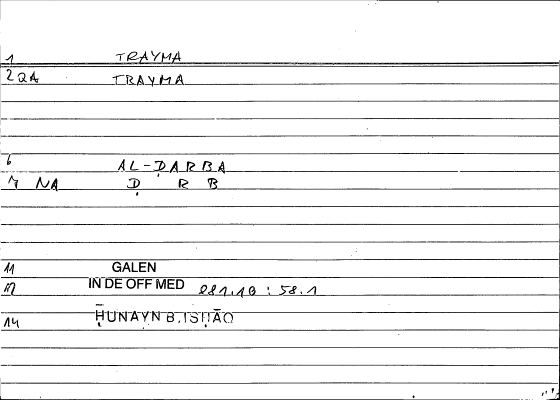 1 TRAYMA
2 QA TRAYMA
6 AL-ḌARBA
7 NA Ḍ R B
11 GALEN
12 IN DE OFF MED 881.18 : 58.1
14 ḤUNAYN B. ISḤĀQ